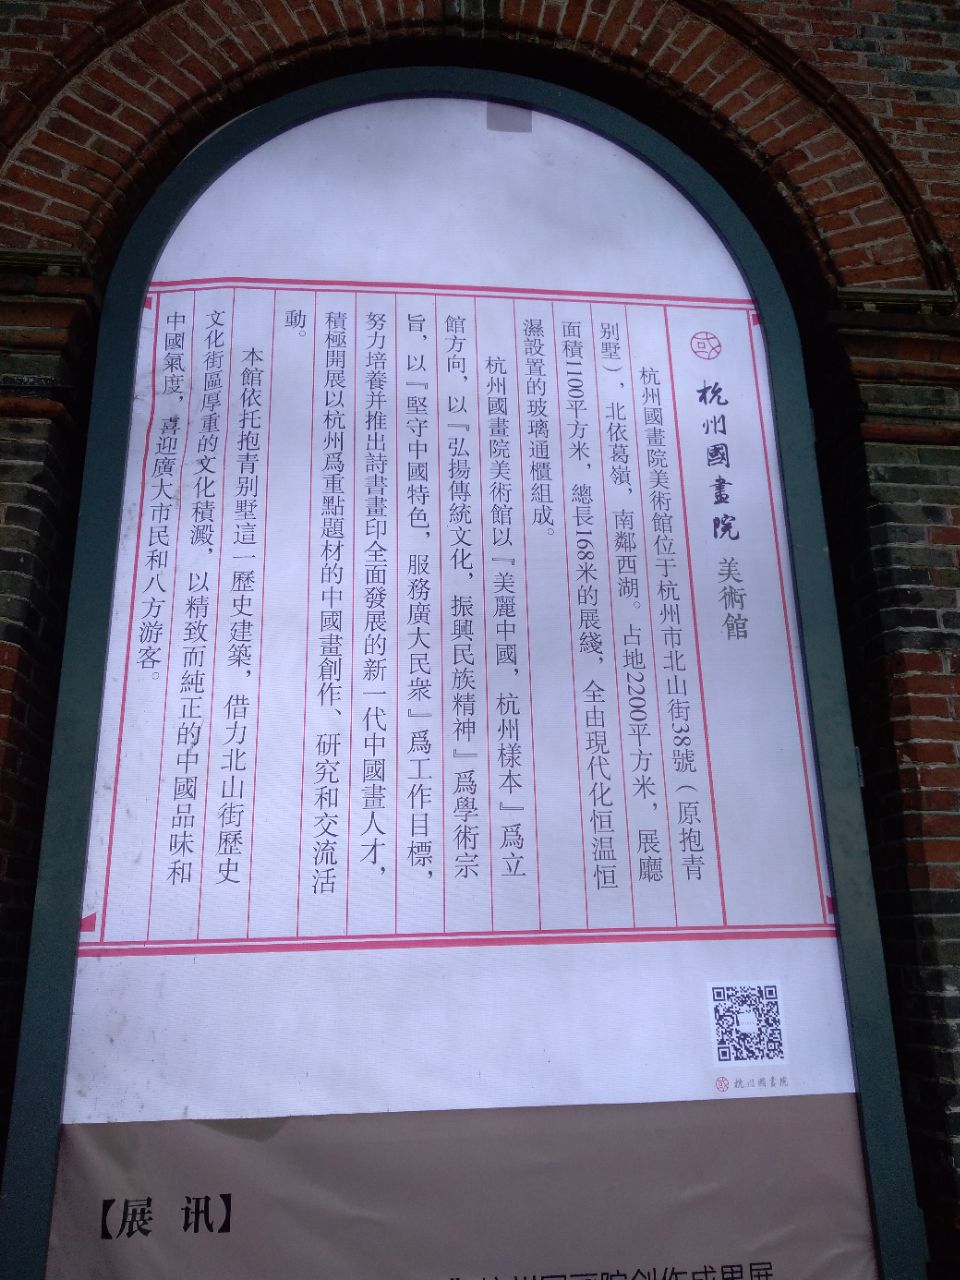 杭州國畫院 美術館
杭州國畫院美術館位于杭州市北山街38號（原抱青
别墅），北依葛嶺，南鄰西湖。占地2200平方米，展廳
面積1100平方米，總長168米的展綫，全由現代化恒温恒
濕設置的玻璃通櫃組成。
杭州國畫院美術館以『美麗中國，杭州樣本』爲立
館方向，以『弘揚傳統文化，振興民族精神』爲學術宗
旨，以『堅守中國特色，服務廣大民衆』爲工作目標，
努力培養并推出詩書畫印全面發展的新一代中國畫人才，
積極開展以杭州爲重點題材的中國畫創作、研究和交流活
動。
本館依托抱青别墅這一歷史建築，借力北山街歷史
文化街區厚重的文化積澱，以精致而純正的中國品味和
中國氣度，喜迎廣大市民和八方游客。
杭州國畫院
【展 讯】
杭州国画院创作成果展